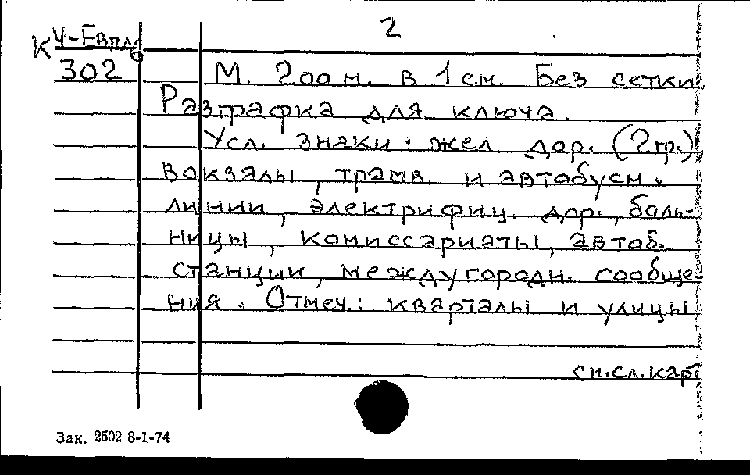 2
К Ч-Евпа
302
М. 200 м. в 1 см. Без сетки
Разграфка для ключа.
Усл. знаки: жел дор. (2 гр.)
вокзалы, трамв. и автобусн.
линии, электрифиц. дор., боль-
ницы, комиссариаты, автоб.
станции, междугородн. сообще
ния. Отмеч.: кварталы и улицы
см.сл.карт
Зак. 2502 8-1-74